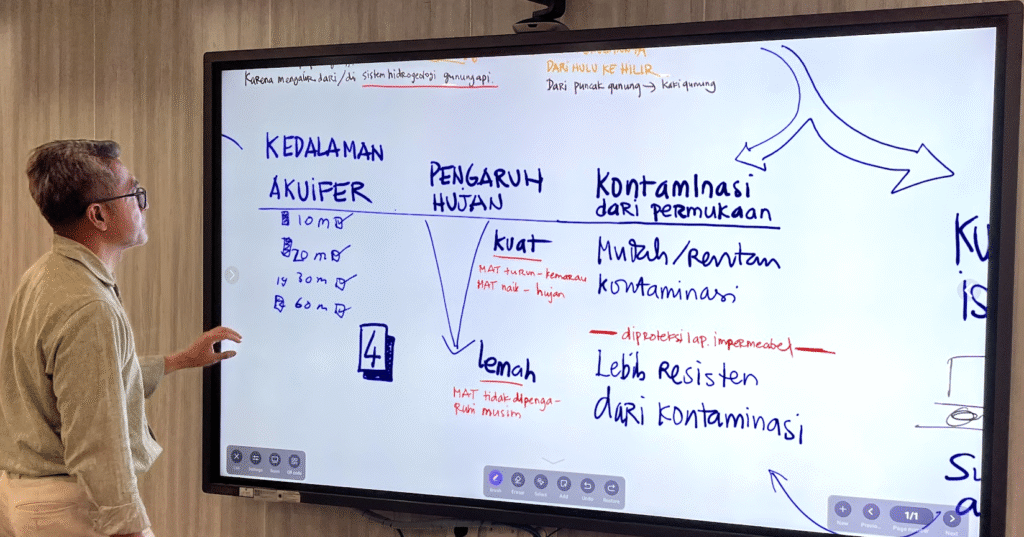 Karena mengalir dari/di sistem hidrogeologi gunungapi.
DARI HULU KE HILIR
Dari puncak gunung → kaki gunung
KEDALAMAN
AKUIFER
10 m
20 m
30 m
60 m
4
PENGARUH
HUJAN
kuat
MAT turun - kemarau
MAT naik - hujan
Lemah
MAT tidak dipenga-
ruhi musim
Kontaminasi
dari permukaan
Mudah/Rentan
kontaminasi
diproteksi lap. impermeabel
Lebih Resisten
dari kontaminasi
KU
is
Su
a
Settings
QR code
Eraser
Select
Add
Undo
New
1/1
Next